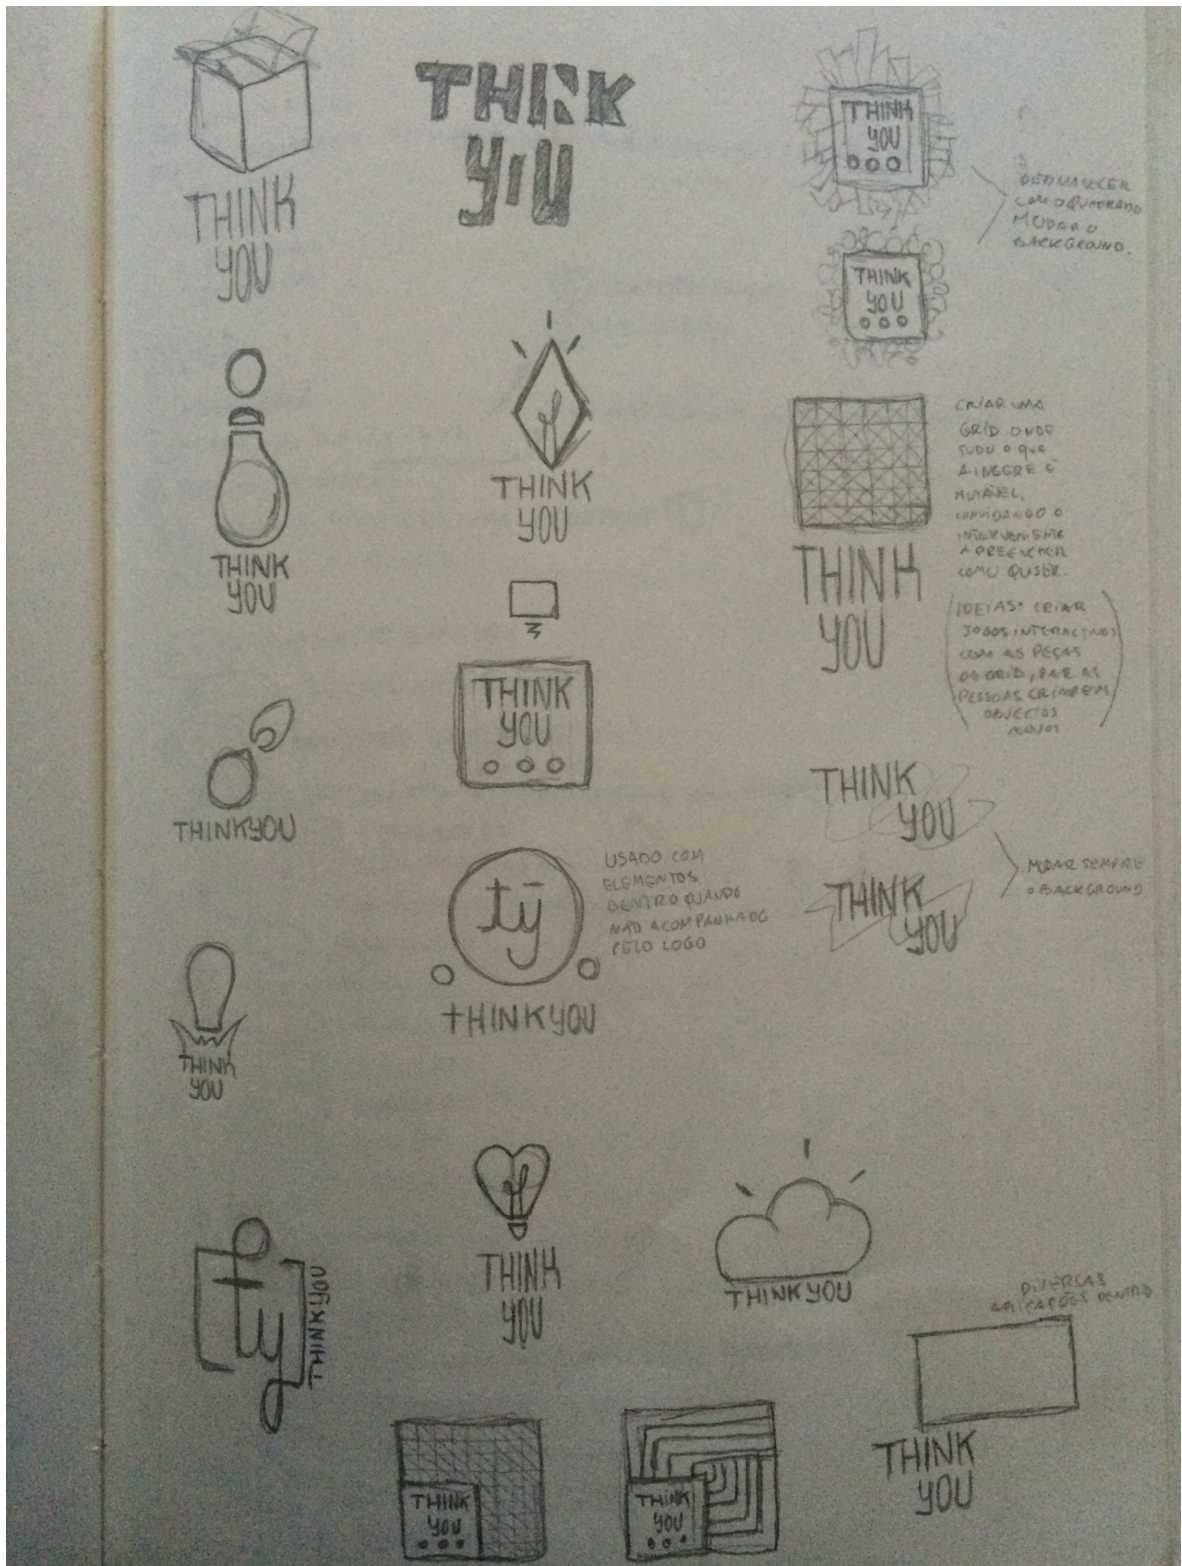 THINK
YOU
THINK
YOU
THINK
YOU
CoM O QUADRADO
MUDAR O
BACKGROUND.
THINK
YOU
THINK
YOU
THINK
YOU
CRIAR UMA
GRID ONDE
TUDO O QUE
MUTÁVEL,
CONVIDANDO O
INTERVENIENTE
A PREENCHER
COMO QUISER.
THINK
YOU
(IDEIAS: CRIAR
JOGOS INTERACTIVOS
COM AS PEÇAS
DA GRID, PARA AS
PESSOAS CRIAREM
OBJECTOS
NOVOS)
THINK
YOU
THINKYOU
THINK
YOU
THINK
YOU
MUDAR SEMPRE
O BACKGROUND
tȳ
USADO COM
ELEMENTOS
DENTRO QUANDO
NÃO ACOMPANHADO
PELO LOGO
tHINKYOU
THINK
YOU
ty
THINKYOU
THINK
YOU
THINKYOU
DIVERSAS
APLICAÇÕES DENTRO
THINK
YOU
THINK
YOU
THINK
YOU